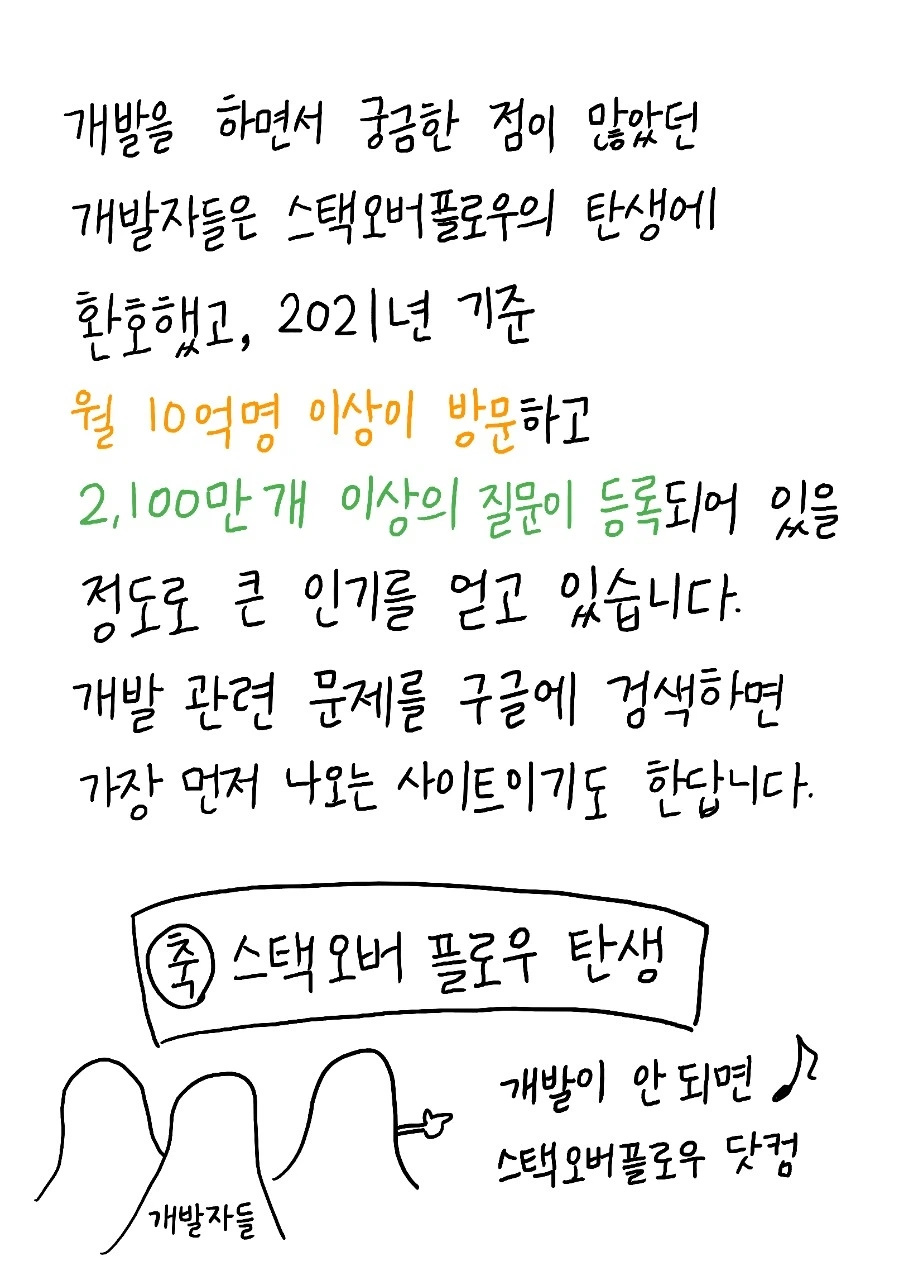 개발을 하면서 궁금한 점이 많았던
개발자들은 스택오버플로우의 탄생에
환호했고, 2021년 기준
월 10억명 이상이 방문하고
2,100만개 이상의 질문이 등록되어 있을
정도로 큰 인기를 얻고 있습니다.
개발 관련 문제를 구글에 검색하면
가장 먼저 나오는 사이트이기도 한답니다.
축 스택오버 플로우 탄생
개발이 안 되면
스택오버플로우 닷컴
개발자들